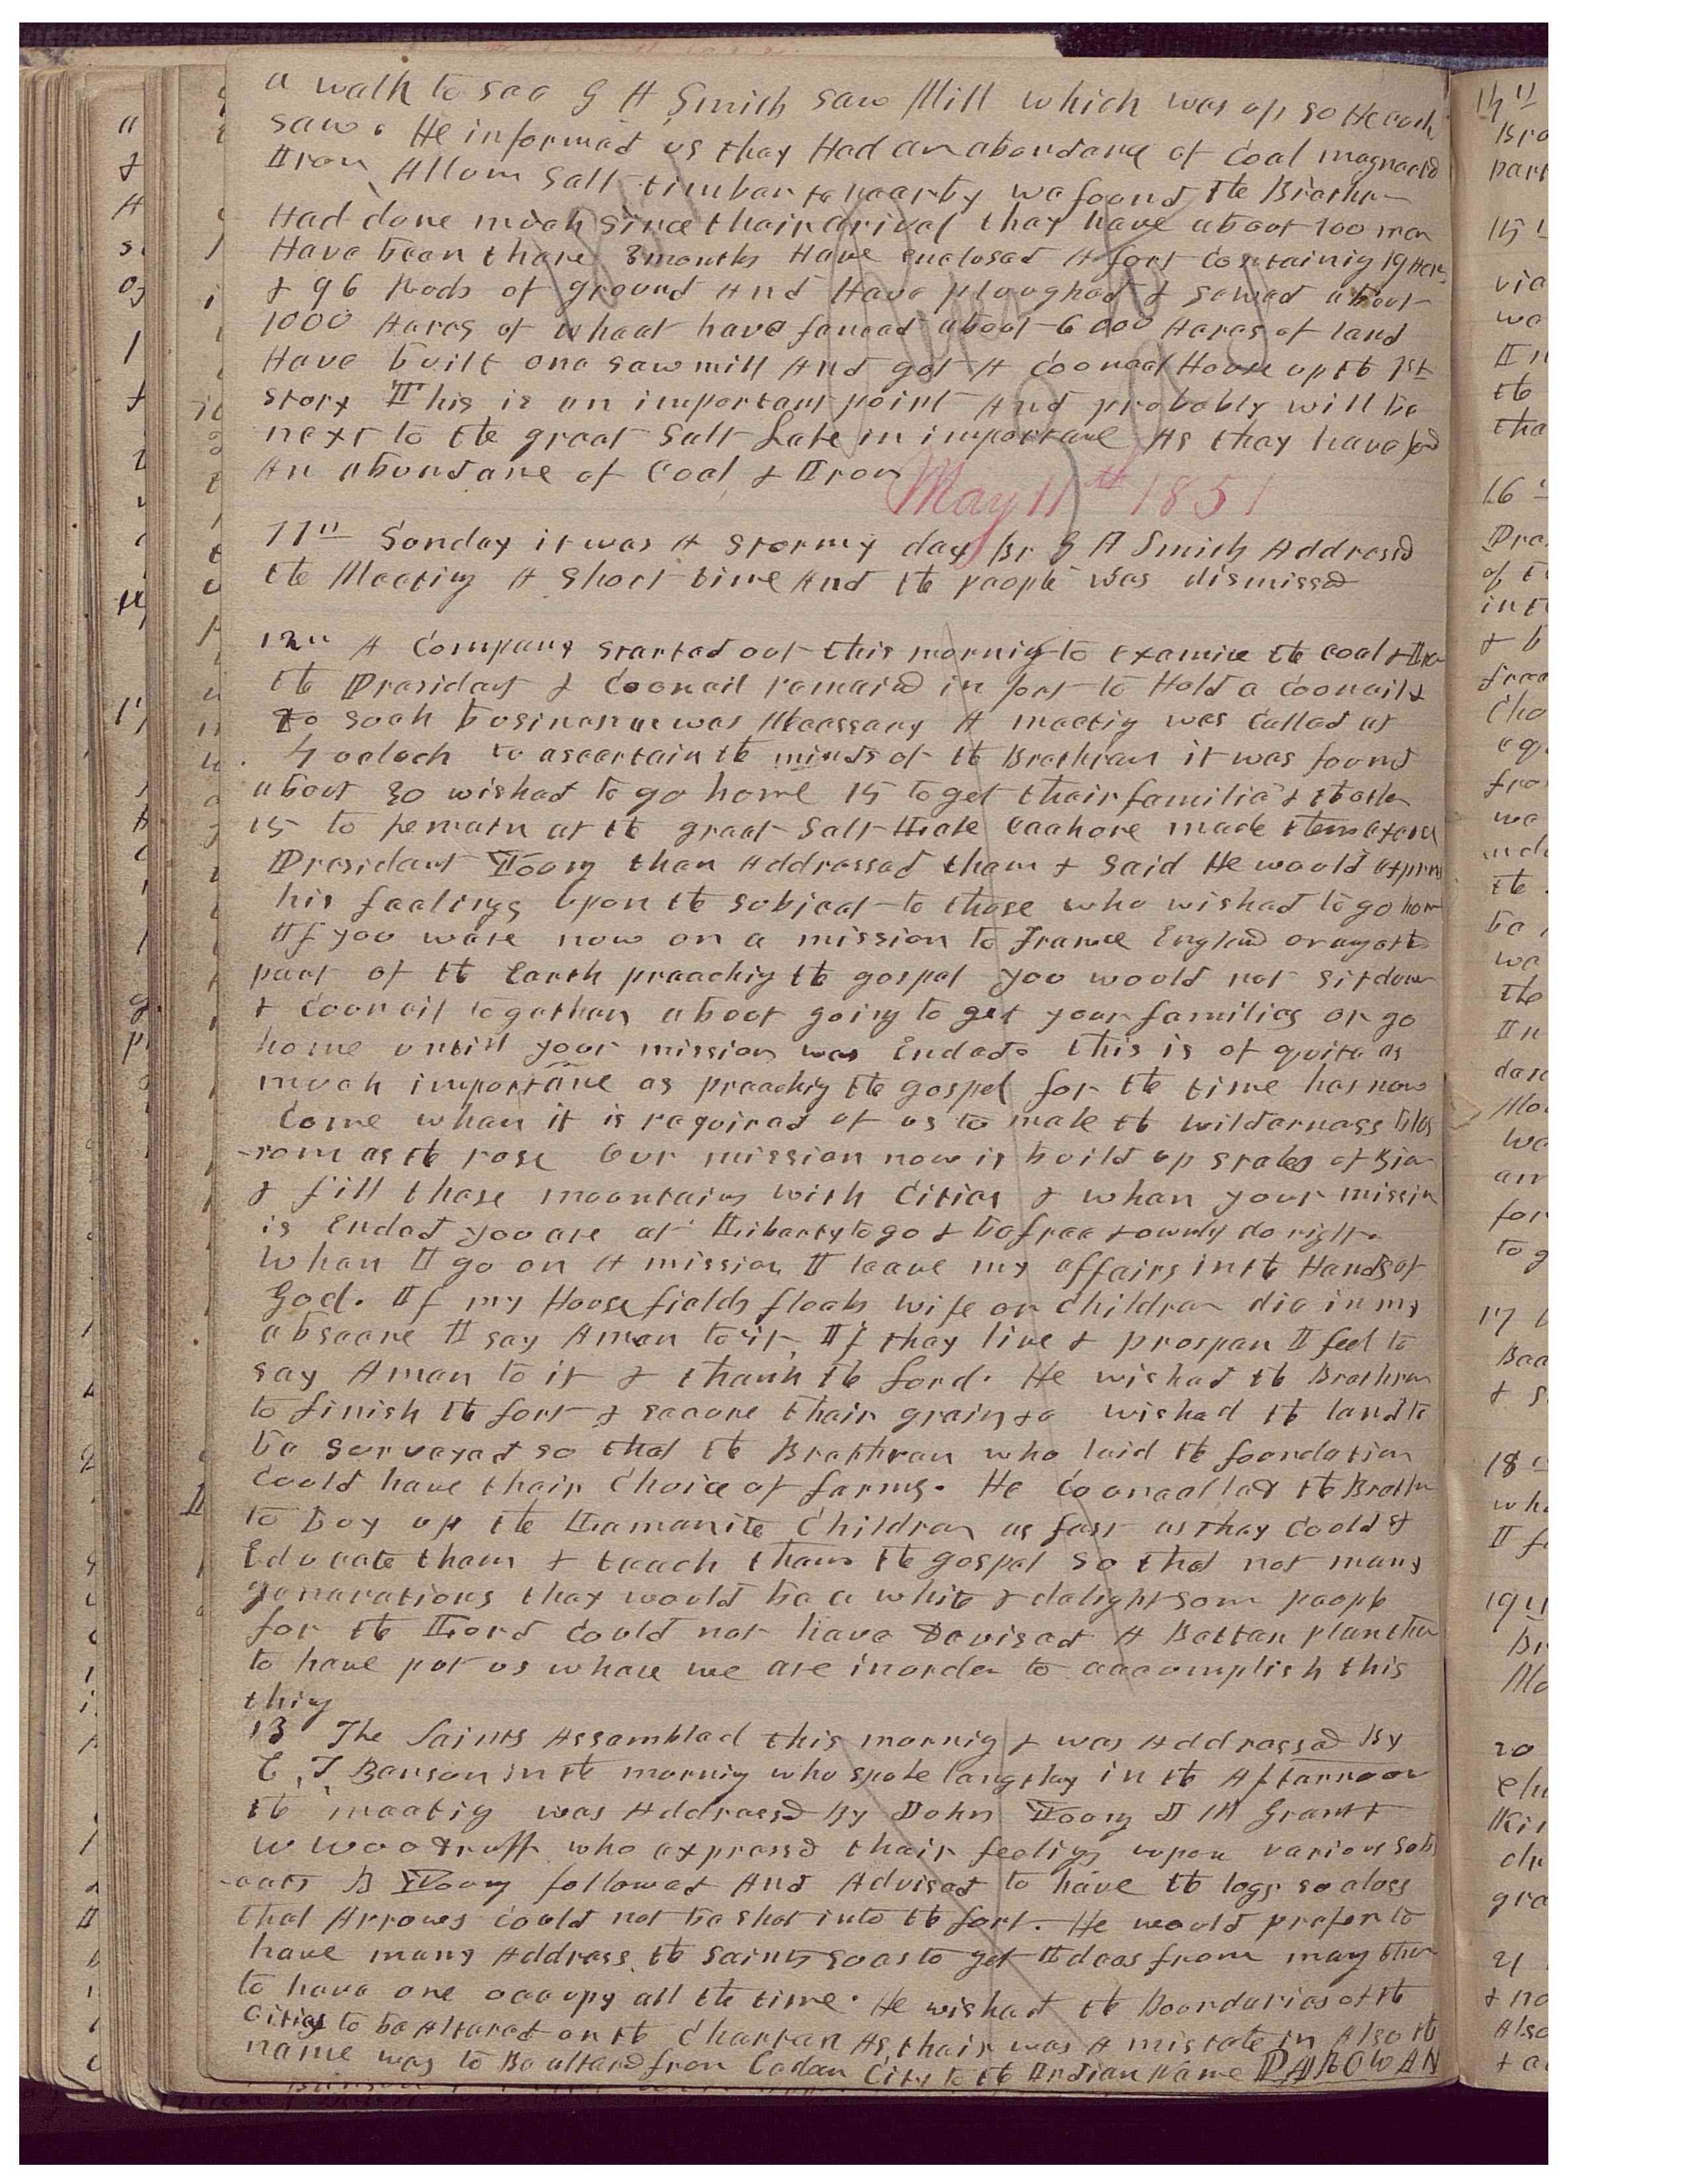 a walk to see G A Smith saw Mill which was up so He could
saw. He informed us they Had an abundance of Coal magnetic
Iron, Allum Salt timber &c nearby we found the Brethren
Had done much since their arival they have about 100 men
Have been there 3 months Have enclosed A fort Containing 19 Acres
& 96 Rods of ground And Have ploughed & sowed about
1000 Acres of wheat have fenced about 6000 Acres of land
Have built one saw mill And got A Council House up to 1st
story This is an important point And probably will be
next to the great Salt Lake in importance As they have found
An abundance of Coal & Iron
May 11th 1851
11th Sunday it was A stormy day Br G A Smith Addressed
the Meeting A Short time And the people was dismissed
12th A Company started out this morning to examine the coal & Iron
the President & Council remained in fort to Hold a Council &
to do such business as was Necessary A meeting was called at
4 oclock to ascertain the minds of the Brethren it was found
about 30 wished to go home 15 to get their families & the other
15 to remain at the great Salt Lake each one made
President Young then Addressed them & said He would express
his feelings upon the subject to those who wished to go home
If you ware now on a mission to France England or any other
part of the Earth preaching the gospel you would not sit down
& Council together about going to get your families or go
home untill your mission was Ended. this is of quite as
much importance as preaching the gospel for the time has now
Come when it is required of us to make the wilderness blos
-som as the rose Our mission now is build up stakes of Zion
& fill these mountains with Cities & when your mission
is Ended you are at Liberty to go & be free & ownly do right.
When I go on A mission I leave my affairs in the Hands of
God. If my House fields flocks wife or Children die in my
absence I say Amen to it. If they live & prosper I feel to
say Amen to it & thank the Lord. He wished the Brethren
to finish the fort & secure their grain &c wished the land to
be surveyed so that the Brethren who laid the foundation
Could have their Choice of farms. He Councelled the Brethren
to Buy up the Lamanite Children as fast as they Could &
Educate them & teach them the gospel so that not many
generations they would be a white & delightsom people
for the Lord could not have Devised A Better plan then
to have put us whare we are in order to accomplish this
thing
13 The Saints Assembled this morning & was Addressed By
E, T, Benson in the morning who spoke lengthy in the Afternoon
the meeting was Addressed By John Young J M Grant &
W Woodruff who expressed their feelings uppon various sub
-jects B Young followed And Advised to have the logs so close
that Arrows could not be shot into the fort. He would prefer to
have many Address the Saints so as to get Ideas from many then
to have one occupy all the time. He wished the Boundaries of the
Cities to be Altered on the Charter As their was A mistake in Also the
name was to Be altered from Cedar City to the Indian Name PAROWAN